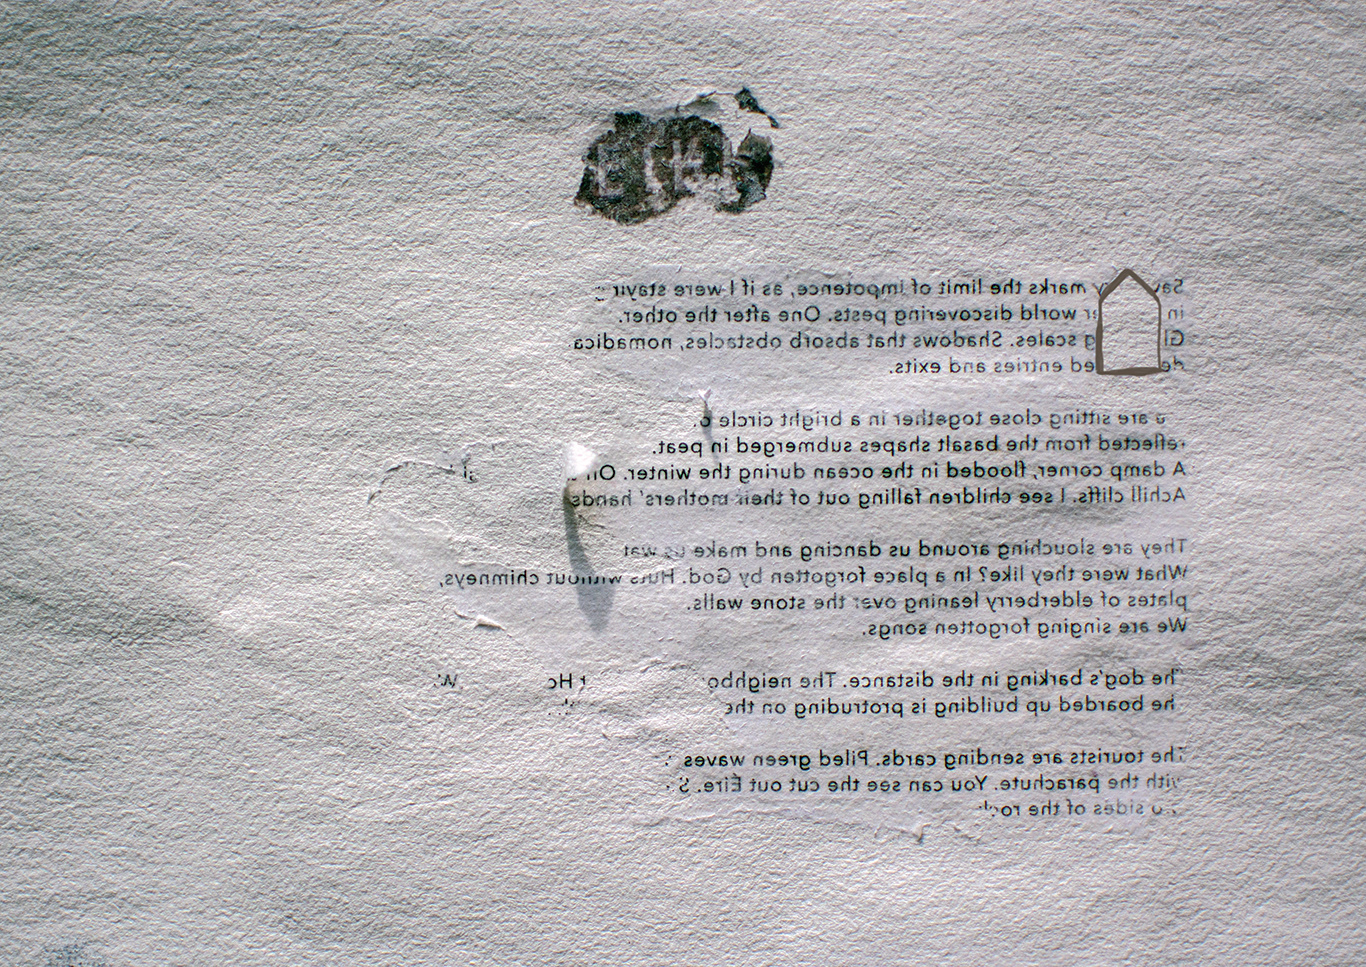 marks the limit of impotence, as if I were
in world discovering pests. One after the other.
scales. Shadows that absorb obstacles,
entries and exits.
are sitting close together in a bright circle
reflected from the basalt shapes submerged in peat.
A damp corner, flooded in the ocean during the winter.
Achill cliffs. I see children falling out of their mothers' hands
They are slouching around us dancing and make us
What were they like? In a place forgotten by God. Huts without chimneys,
plates of elderberry leaning over the stone walls.
We are singing forgotten songs.
The dog's barking in the distance. The
he boarded up building is protruding on the
The tourists are sending cards. Piled green waves
with the parachute. You can see the cut out Éire.
sides of the